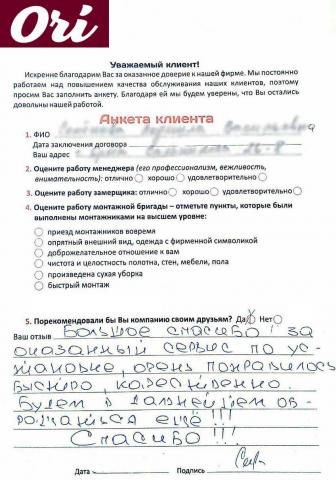 Ori
Уважаемый клиент!
Искренне благодарим Вас за оказанное доверие к нашей фирме. Мы постоянно
работаем над повышением качества обслуживания наших клиентов, поэтому
просим Вас заполнить анкету. Благодаря ей мы будем уверены, что Вы остались
довольны нашей работой.
Анкета клиента
1. ФИО
Дата заключения договора
Ваш адрес
2. Оцените работу менеджера (его профессионализм, вежливость,
внимательность): отлично хорошо удовлетворительно
3. Оцените работу замерщика: отлично хорошо удовлетворительно
4. Оцените работу монтажной бригады – отметьте пункты, которые были
выполнены монтажниками на высшем уровне:
приезд монтажников вовремя
опрятный внешний вид, одежда с фирменной символикой
доброжелательное отношение к вам
чистота и целостность полотна, стен, мебели, пола
произведена сухая уборка
быстрый монтаж
5. Порекомендовали бы Вы компанию своим друзьям? Да Нет
Ваш отзыв Большое спасибо! за
оказанный сервис по ус-
тановке, очень понравилось
быстро, качественно.
Будем в дальнейшем об-
ращаться ещё!!!
Спасибо!!!
Дата Подпись